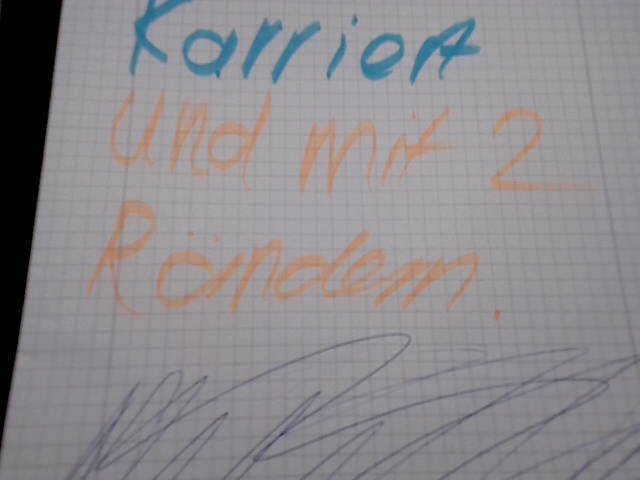 Karriert
und mit 2
Rändern.